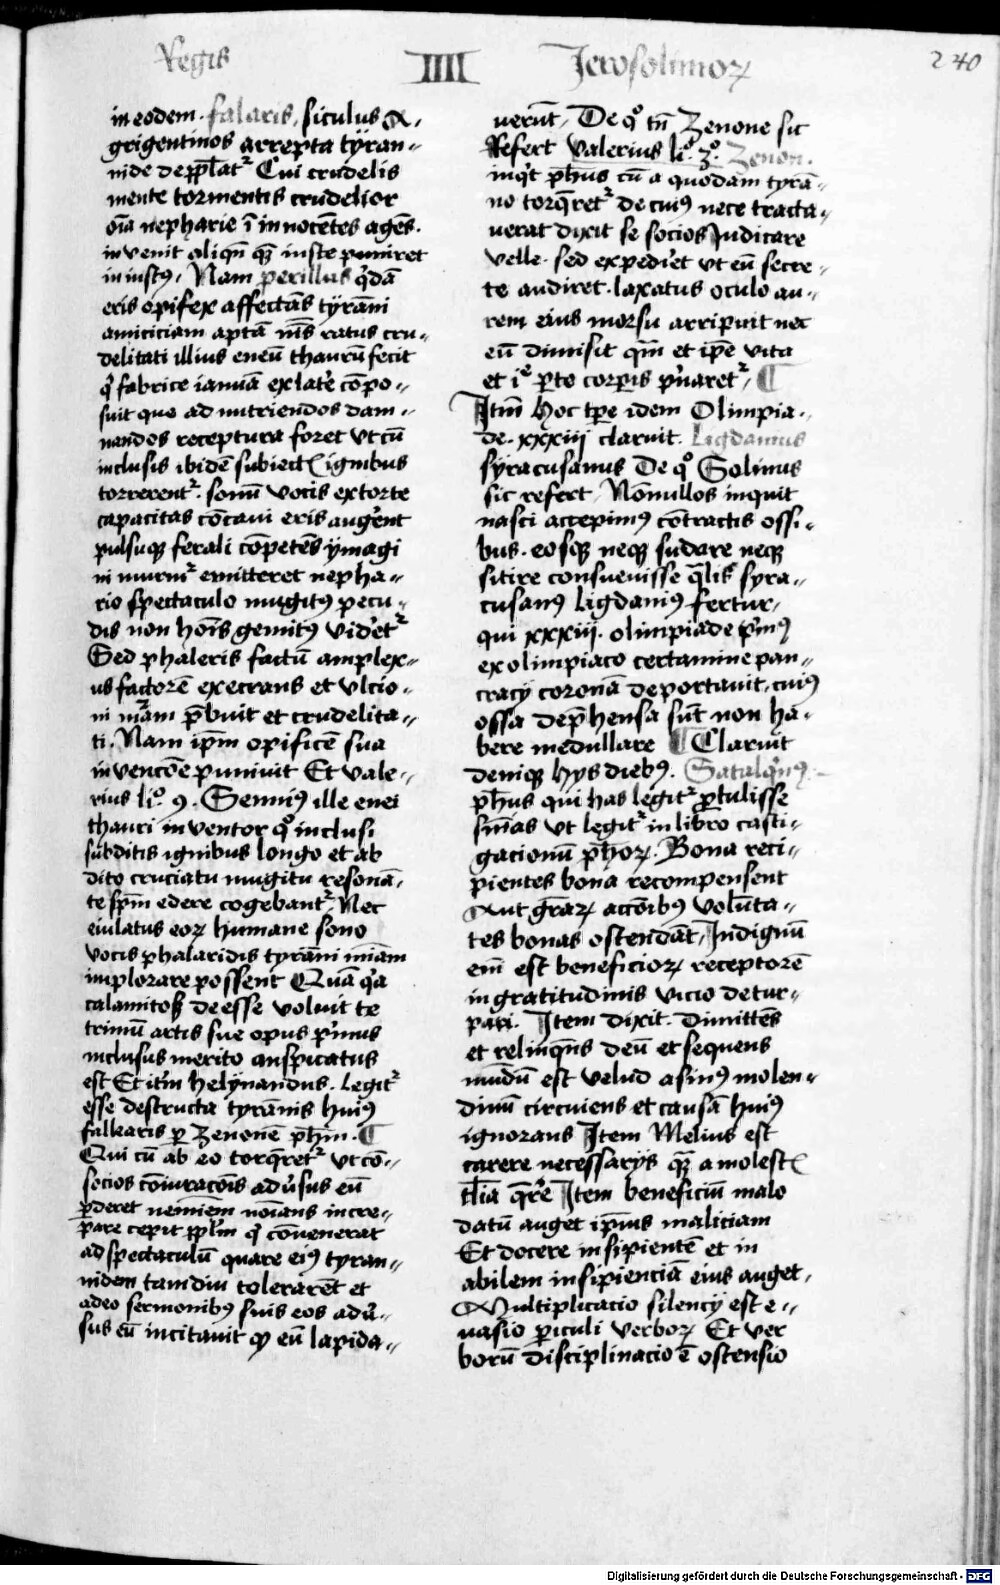 Regis IIII Jerosolimoꝝ 240
in eodem. falaris, siculus A,
grigentinos arrepta tÿran-
nide depp̄lat᷑ Cui crudelis
mente tormentis crudelior
oīa nepharie ī innocētes agēs.
invenit aliqn̄ qꝫ iuste puniret
iniustꝰ, Nam perillus qͥdā
eris opifex affectās tÿrāni
amiciciam aptā mīs ratus cru-
delitati illius eneū thaurū fecit
qͥ fabrice ianuā ex lat̓e cōpo-
suit que ad nutriendos dam-
nandos receptura foret ut cū
inclusis ibidē subiectꝭ ignibus
torrerent᷑. sonū vocis extorte
capacitas cōcaui eris aug̓ent
pulsuqꝫ ferali cōpetēs ÿmagi
ni murm᷑ emitteret nepha-
rio spectaculo mugitꝰ pecu-
dis non hoīs gemitꝰ vid̓et᷑
Sed phaleris factū amplex-
us factorē execrans et ulcio-
ni mām p̄buit et crudelita-
ti. Nam ip̄m opificē sua
invencōe punivit Et vale-
rius liͦ. 9. Sennīꝰ ille enei
thauri inventor qͦ inclusi
subditis ignibus longo et ab
dito cruciatu mugitu resonā,
te sp̄m edere cogebant᷑. Nec
eiulatus eoꝝ humane sono
vocis phalaridis tyrāni mīam
implorare possent Quā qͥa
calamitoß deesse voluit te
trimū artis sue opus pͥmus
inclusus merito auspicatus
est Et it̄m helÿnandus. Legit᷑
esse destructa tyrānis huiꝰ
falkaris ꝑ Zenonē ph̄m. ¶
Qui cū ab eo torq̄ret᷑ ut cō-
socios cōiuracōis adu̓sus eū
ꝑderet neminem noīans incre-
pare cepit pp̄lm qͥ cōvenerat
ad spectaculū quare eiꝰ tyran-
nidem tamdiu tolerarēt et
adeo sermonibꝰ suis eos adu̓-
sus eū incitauit qꝫ eū lapida-
verūt, De qͦ tn̄ Zenone sic
Refert Valerius liͦ. 3ͦ. Zenon.
inqͥt ph̄us cū a quodam tyrā-
no torq̄ret᷑ de cuiꝰ nece tracta-
uerat dixit se socios Judicare
velle. sed expedīet ut eū secre-
te audiret. laxatus oculo au-
rem eius morsu arripuit nec
eū dimisit qm̄ et ip̄e vita
et iͤ ꝑte corꝑis pͥuaret᷑, ¶
Itm̄ hoc tꝑe idem Olimpia-
de. xxxiij claruit. Ligdamus
syracusanus De qͦ Solinus
sic refert, Nōnullos inquit
nasci accepimꝰ cōtractis ossi-
bus. eosqꝫ neqꝫ sudare neqꝫ
sitire consuevisse q̄lis syra-
cusanꝰ ligdanīꝰ fertur,
qui xxxiij. olimpiade pͥmꝰ
ex olimpiaco certamine pan-
cracÿ coronā deportauit. cuiꝰ
ossa dep̄hensa sūt non ha-
bere medullare ¶ Claruit
deniqꝫ hys diebꝰ. Satalqͥnꝰ.
ph̄us qui has legit᷑ ꝓtulisse
sn̄ias ut legit᷑ in libro casti-
gacionū ph̄oꝝ. Bona reci-
pientes bona recompensent
Aut gr̄aꝝ acc̄oibꝰ volūta-
tes bonas ostendāt, Indignū
em̄ est beneficioꝝ receptorē
ingratitudinis vicio detur-
pari. Item dixit. dimittēs
et relinqn̄s deū et sequens
mūdū est velud asinꝰ molen-
dinū circuiens et causā huiꝰ
ignorans Item Melius est
carere necessarÿs qꝫ a molestꝭ
illā q̄rͤe Item beneficiū malo
datū auget ip̄ius maliciam
Et docere insipientē et in
abilem insipienciā eius auget,
Multiplicacio silencÿ est e-
vasio ꝑiculi verboꝝ Et ver
borū disciplinacio ē ostensio
Digitalisierung gefördert durch die Deutsche Forschungsgemeinschaft - DFG